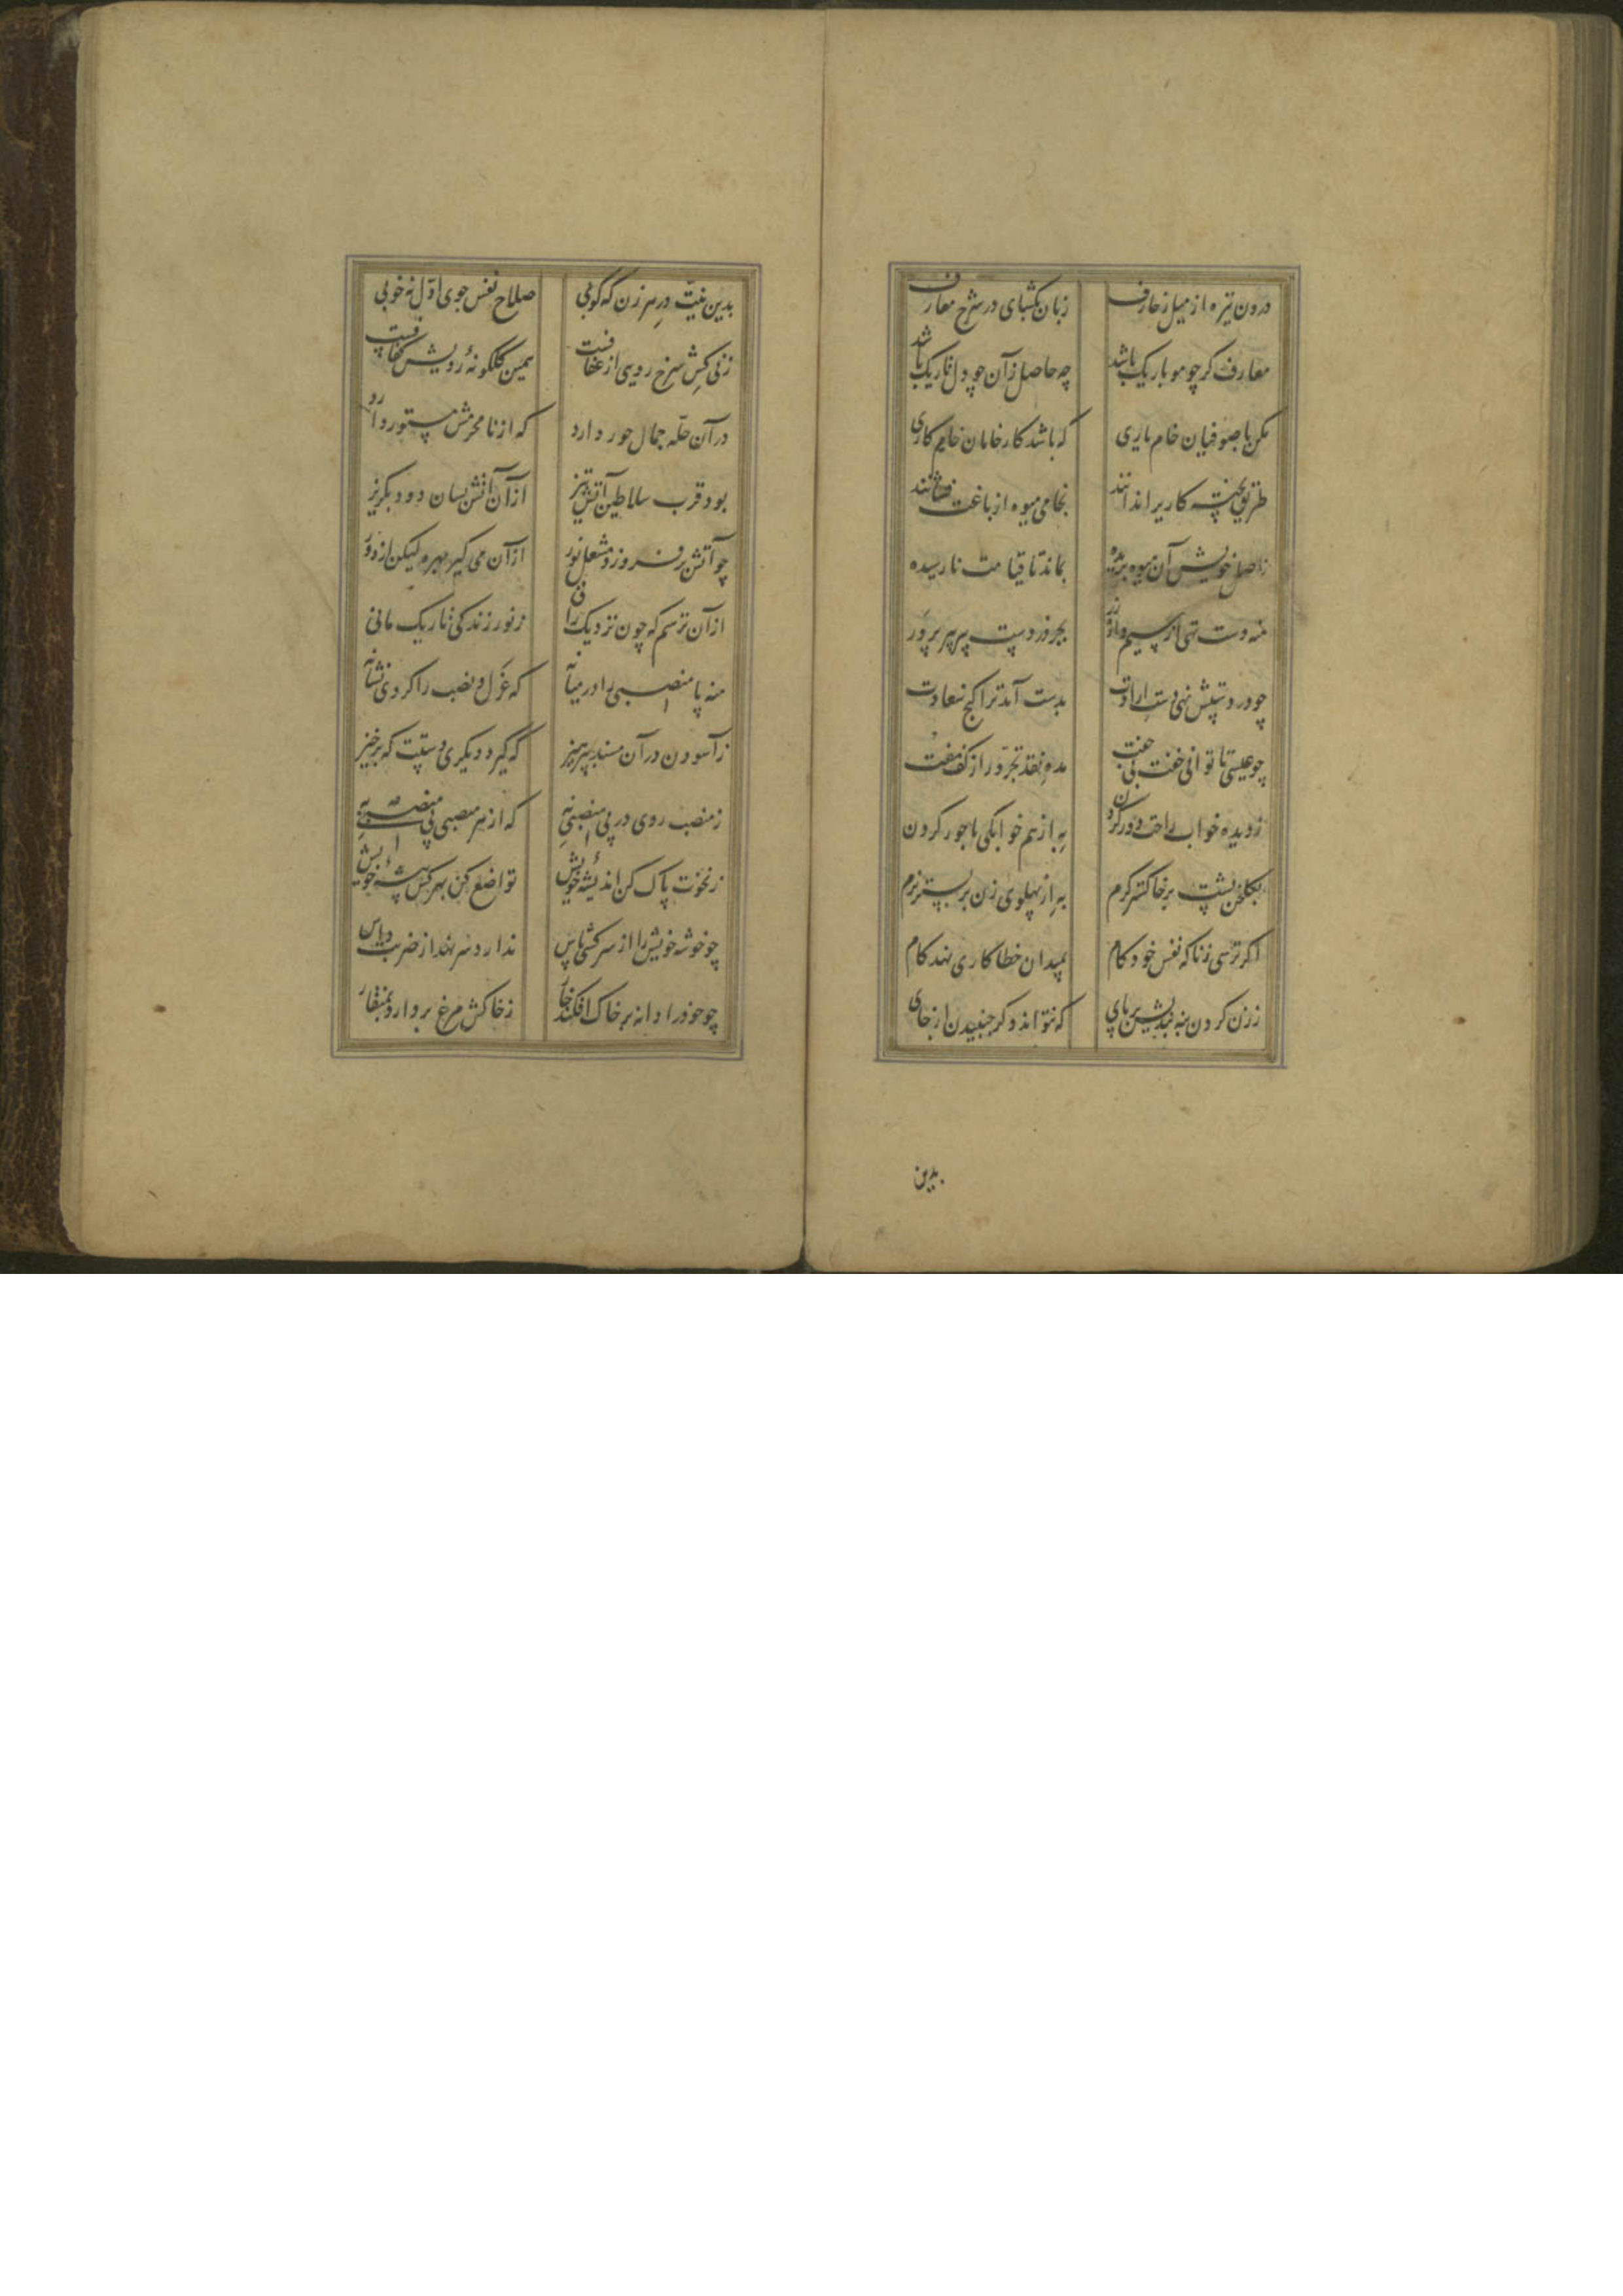 درون تیره از میل زخارف زبان بگشای در شرح معارف
معارف گر چو مو باریک باشد چه حاصل زآن چو دل تاریک باشد
مکن با صوفیان خام یاری که باشد کار خامان خام کاری
طریق پخته کاری را ندانند بخامی میوه از باغت فشانند
ز اصل خویش آن میوه بریده بماند تا قیامت نارسیده
منه دست تهی از سیم و از زر بجز در دست پیر پرور
چو در دستش نهی دست ارادت بدست آید ترا گنج سعادت
چو عیسی تا توانی خفت بی جفت مده نقد تجرد را ز کف مفت
ز دیده خواب راحت دور کردن به از هم خوابگی با حور کردن
بگلخن پشت بر خاکستر گرم به از پهلوی زن بر بستر نرم
اگر ترسی زنا که نفس خود کام بمیدان خطاکاری نهد گام
ز زن کردن بنه بندیش بر پای که نتواند دگر جنبیدن از جای
بدین
بدین نیت در هر زن که کوبی صلاح نفس جوی اول نه خوبی
زنی کش سرخ رویی از عفافست همین گلگونهٔ رویش کفافست
در آن حله جمال حور دارد که از نامحرمش مستور دارد
بود قرب سلاطین آتش تیز از آن آتش بسان دود بگریز
چو آتش بر فروزد مشعل نور از آن می گیر بهره لیکن از دور
از آن ترسم که چون نزدیک رانی ز نور زندگی تاریک مانی
منه پا منصبی را در میانه که عزل و نصب را گردی نشانه
ز آسودن در آن مسند بپرهیز که گیرد دیگری دستت که برخیز
ز منصب روی در بی منصبی نه که از هر منصبی بی منصبی به
ز نخوت پاک کن اندیشهٔ خویش تواضع کن بهر کس پیشهٔ خویش
چو خوشه خویش را از سرکشی پاس ندارد سر نهد از ضربت داس
چو خود را دانه بر خاک افکند خار ز خاکش مرغ بردارد بمنقار